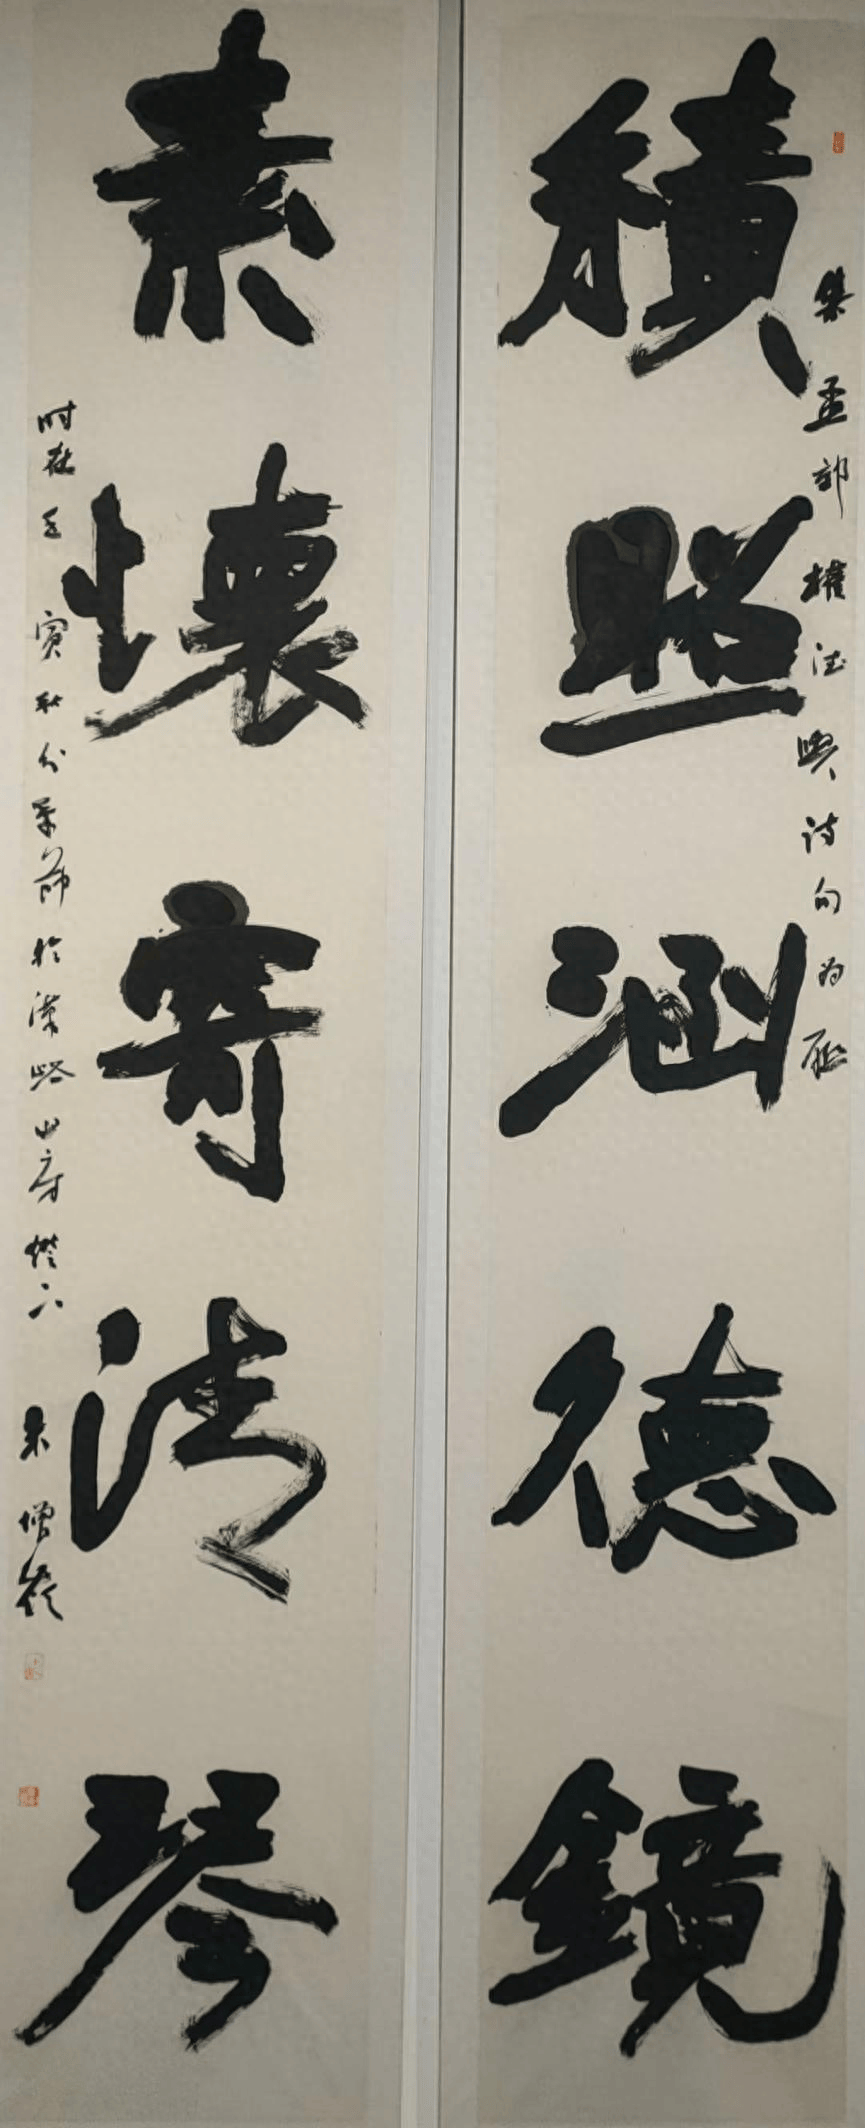 積照涵德鏡
集孟郊權德輿詩句為聯
素懷寄清琴
時在壬寅秋分季節於漢皋山房燈下
朱增嶽